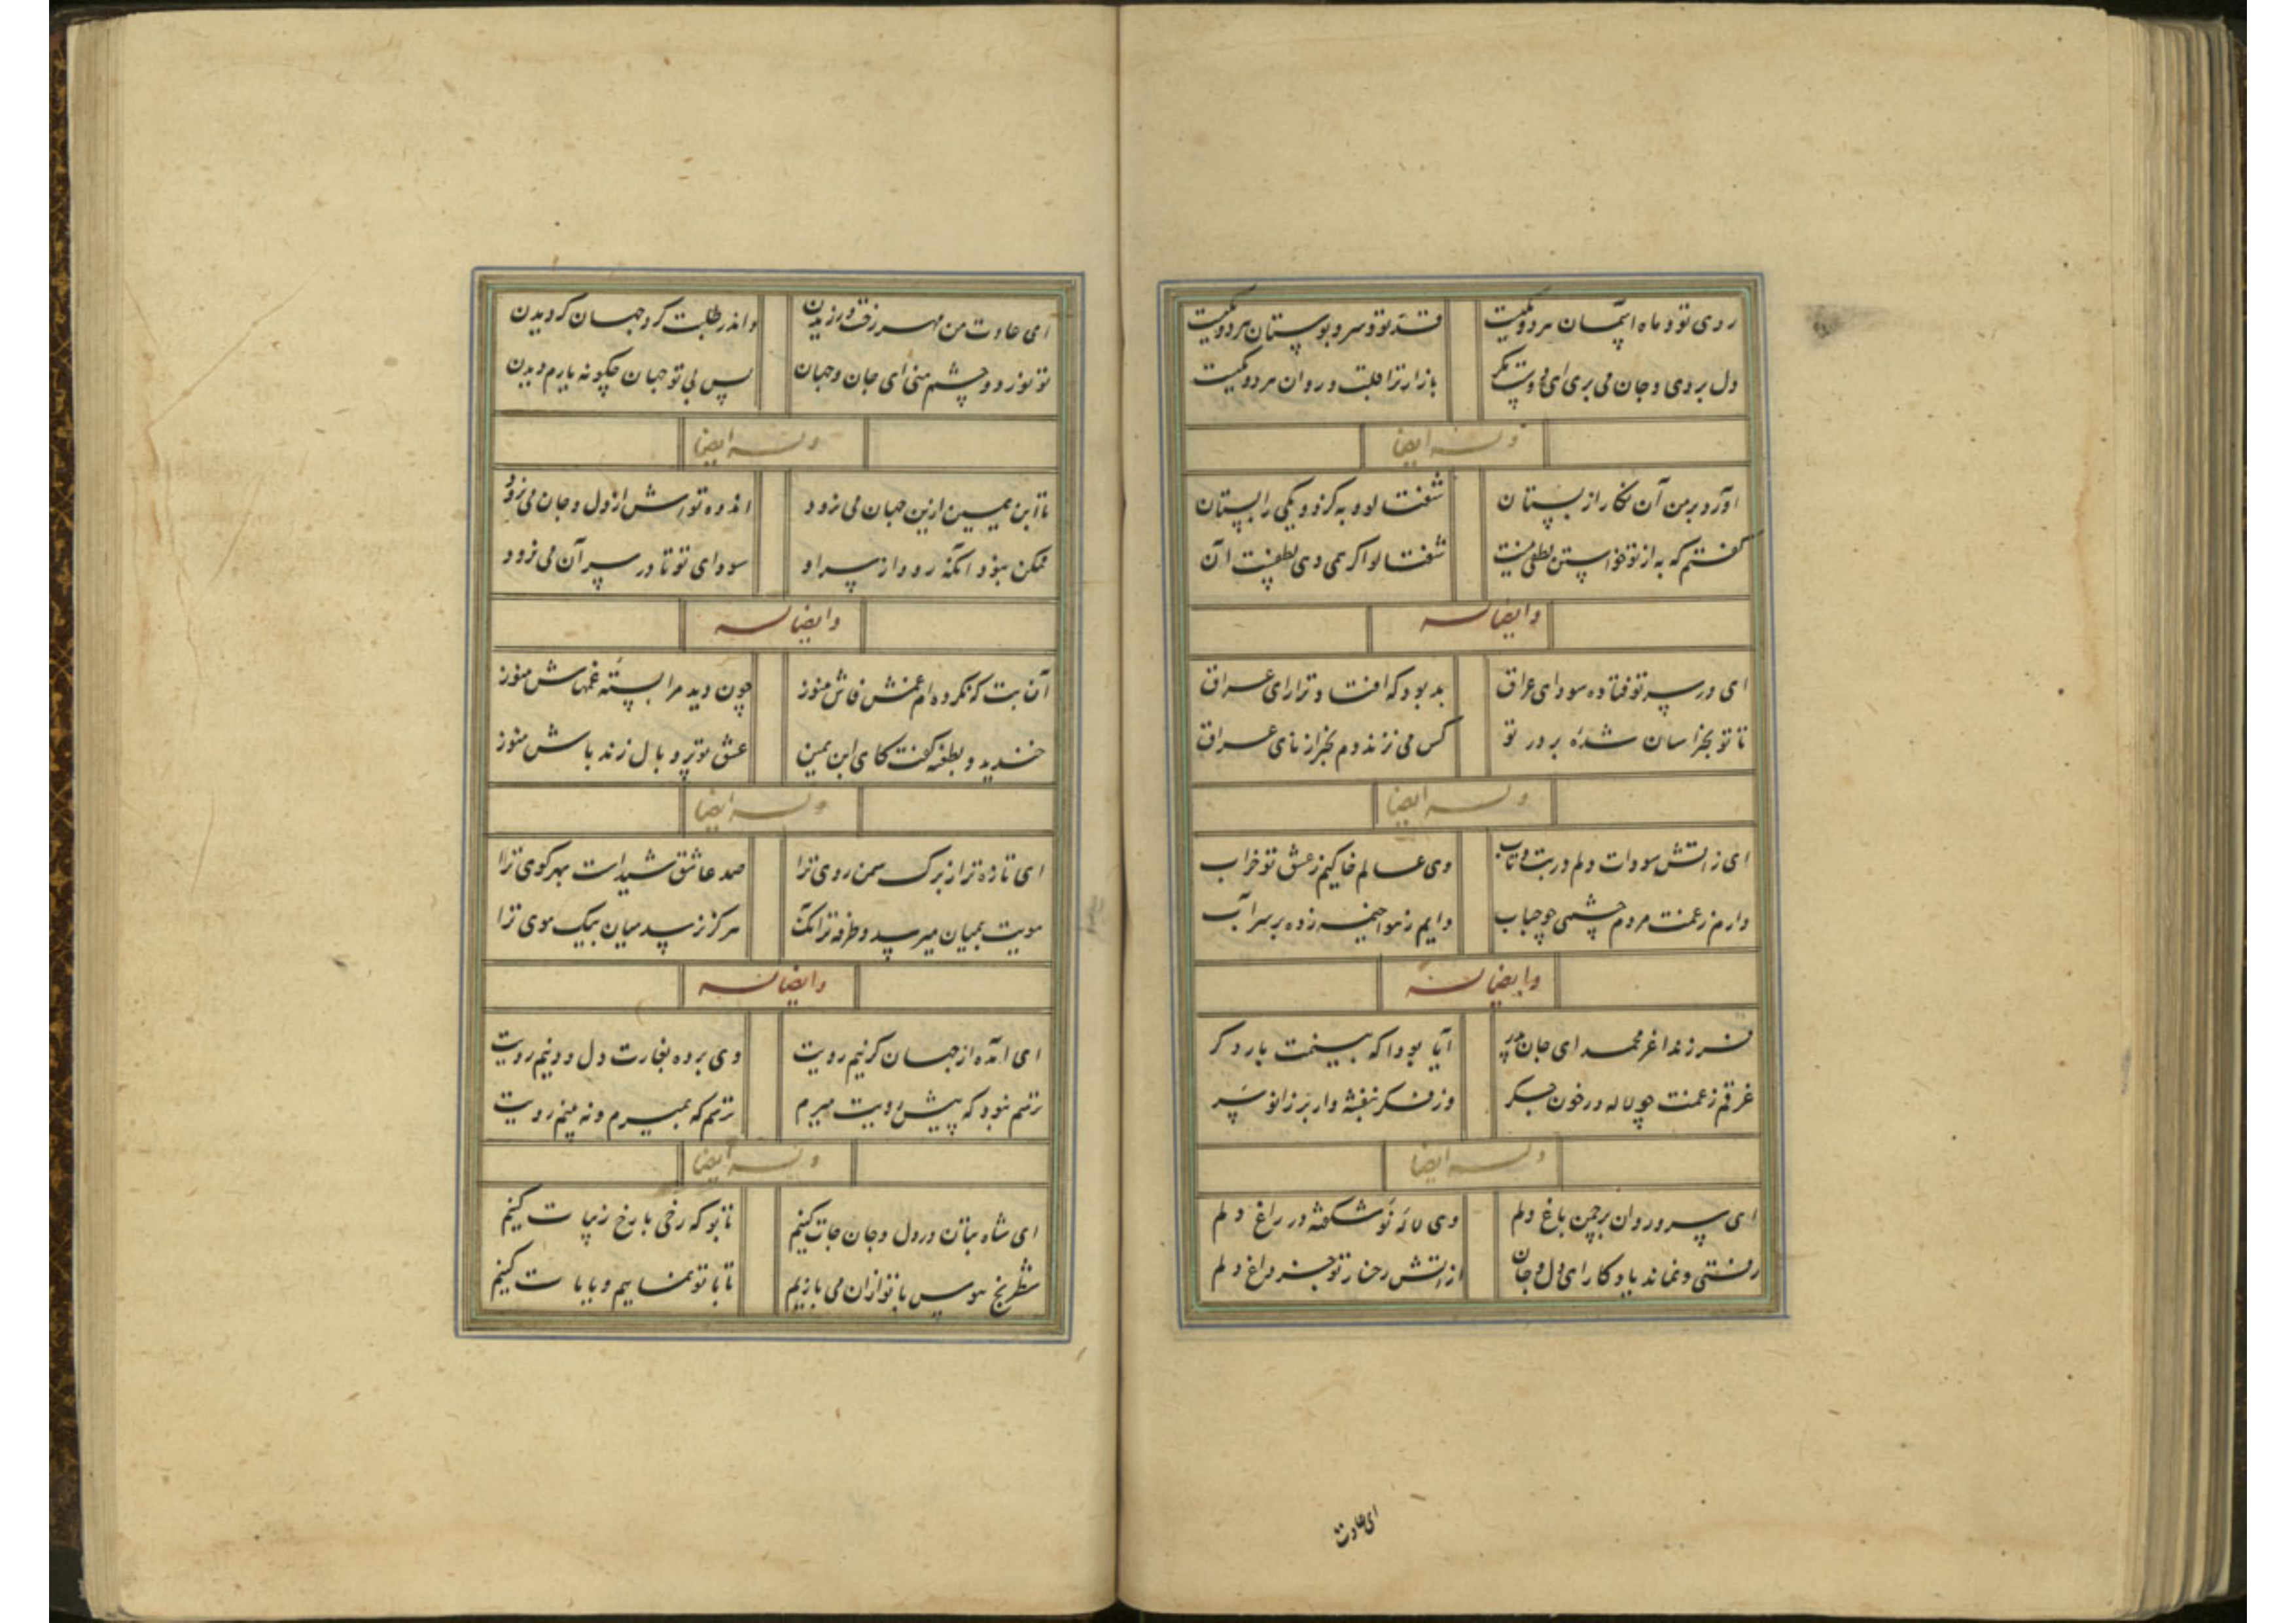 روی تو و ماه آسمان هر دو یکیست
قد تو و سرو بوستان هر دو یکیست
دل بردی و جان می بری ای دوست مگر
بازار ترا قلب و روان هر دو یکیست
وله ایضا
آورد بر من آن نگار از بستان
شفتالو و به کزو یکی را بستان
گفتم که به از تو خواستن لطفی نیست
شفتالو اگر می دهی لطفست آن
وایضا له
ای در سر تو فتاده سودای عراق
بد بود که افتاد ترا رای عراق
تا تو بخراسان شدهٔ بر در تو
کس می نزند دم بجز از نای عراق
وله ایضا
ای ز آتش سودات دلم در تب و تاب
وی عالم خاکیم ز عشق تو خراب
دارم ز غمت مردم چشمی چو حباب
دایم ز هوا خیمه زده بر سر آب
وایضا له
فرزند اغر محمد ای جان پدر
آیا بود آ که بینمت بار دگر
غرقم ز غمت چو لاله در خون جگر
وز فکر بنفشه وار بر زانو سر
وله ایضا
ای سرو روان بر چمن باغ دلم
وی لالهٔ نو شکفته در راغ دلم
رفتی و نماند یادگار ای دل و جان
از آتش رخسار تو جز داغ دلم
ای عادت
ای عادت من مهر رخت ورزیدن
واندر طلبت گرد جهان گردیدن
تو نور دو چشم منی ای جان و جهان
پس بی تو جهان چگونه یارم دیدن
وله ایضا
تا ابن یمین ازین جهان می نرود
اندوه تواش از دل و جان می نرود
ممکن نبود آنکه رود از سر او
سودای تو تا در سر آن می نرود
وایضا له
آن بت که نکرده ام غمش فاش هنوز
چون دید مرا بسته غمهاش هنوز
خندید و بطعنه گفت کای ابن یمین
عشق تو پر و بال زند باش هنوز
وله ایضا
ای تازه تر از برک سمن روی ترا
صد عاشق شیداست بهر کوی ترا
مویت بمیان میرسد و طرفه تر آنک
هرگز نرسد میان بیک موی ترا
وایضا له
ای آمده از جهان گزینم رویت
وی برده بغارت دل و دینم رویت
ترسم نبود که پیش رویت میرم
ترسم که بمیرم و نه بینم رویت
وله ایضا
ای شاه بتان در دل و جان جات کنیم
تا بو که رخی با رخ زیبات کنیم
شطرنج هوس با تو از آن می بازیم
تا با تو نماییم و بابات کنیم